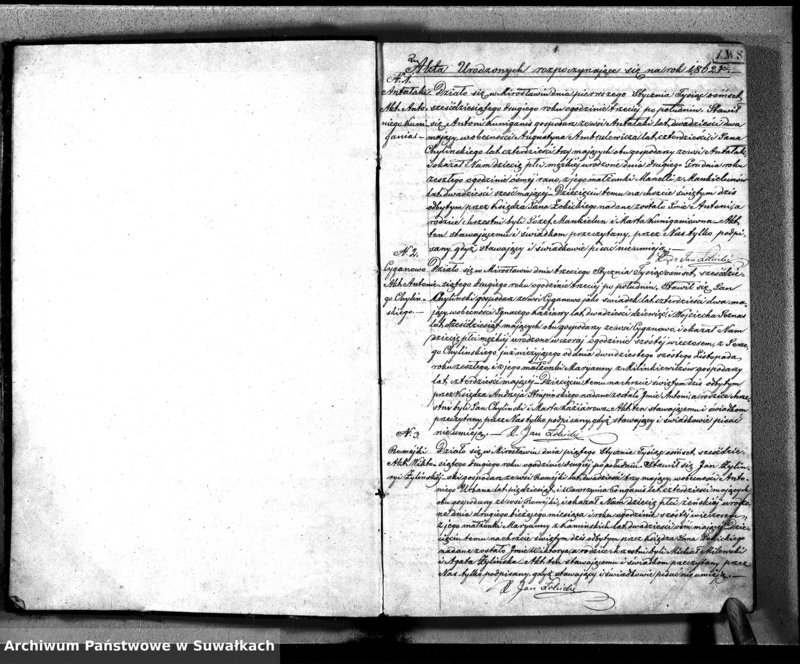 1.
Akta Urodzonych rozpoczynające się na rok 1862
N. 1.
Antalaki Działo się w Mirosławiu dnia pierwszego Stycznia Tysiąc ośmset
Akt Anto- sześćdziesiątego drugiego roku o godzinie trzeciej po południu. Stawił
niego Kuni- się Antoni Kunigonis gospodarz ze wsi Antalaki lat dwadzieścia dwa
gania mający, w obecności Augustyna Ambrulewicza lat czterdzieści i Jana
Chylińskiego lat czterdzieści trzy mających obu gospodarzy ze wsi Antalaki,
i okazał Nam dziecię płci męzkiej urodzone dnia drugiego Grudnia roku
zeszłego o godzinie ósmej rano, z jego małżonki Maryanny z
lat dwadzieścia sześć mającej. Dziecięciu temu na chrzcie świętym dziś
odbytym przez Księdza Jana Łobickiego nadane zostało Imie Antoni, a
rodzice chrzestni byli Józef i Marta Kunigoniowna. Akt
ten stawającemu i świadkom przeczytany, przez Nas tylko podpi-
sany, gdyż stawający i świadkowie pisać nieumieją.
X. Jan
N. 2.
Cyganowo Działo się w Mirosławiu dnia trzeciego Stycznia Tysiąc ośmset sześćdzie-
Akt Antonie- siątego drugiego roku o godzinie trzeciej po południu. Stawił się Jan
go Chyliń- Chyliński gospodarz ze wsi Cyganowo jako świadek lat czterdzieści dwa ma-
skiego jący, w obecności Ignacego lat dwadzieścia dziewięć i Wojciecha
lat sześćdziesiąt mających obu gospodarzy ze wsi Cyganowo, i okazał Nam
dziecię płci męzkiej urodzone wczoraj o godzinie szóstej wieczorem, z
go Chylińskiego już nieżyjącego od dnia dwudziestego szóstego Listopada
roku zeszłego, i z jego małżonki Maryanny z Milunkiewiczow gospodyni
lat czterdzieści mającej. Dziecięciu temu na chrzcie świętym dziś odbytym
przez Księdza Andrzeja nadane zostało Imie Antoni, a rodzice chrze-
stni byli Jan Chyliński i Marta. Akt ten stawającemu i świadkom
przeczytany, przez Nas tylko podpisany, gdyż stawający i świadkowie pisać
nieumieją. X. Jan
N. 3
Rumejki Działo się w Mirosławiu dnia piątego Stycznia Tysiąc ośmset sześćdzie-
Akt Wikto- siątego drugiego roku o godzinie drugiej po południu. Stawił się Jan Żyliń-
ryi Żylińskiej ski gospodarz ze wsi Rumejki lat dwadzieścia trzy mający, w obecności Anto-
niego Urbana lat pięćdziesiąt, i Wawrzyńca lat czterdzieści mających
obu gospodarzy ze wsi Rumejki, i okazał Nam dziecię płci żeńskiej urodzo-
ne dnia drugiego bieżącego miesiąca i roku o godzinie szóstej wieczorem,
z jego małżonki Maryanny z Kamińskich lat dwadzieścia ośm mającej. Dzie-
cięciu temu na chrzcie świętym dziś odbytym przez Księdza Jana Łobickiego
nadane zostało Imie Wiktorya, a rodzice chrzestni byli Michał Milewski
i Agata Żylińska. Akt ten stawającemu i świadkom przeczytany przez
Nas tylko podpisany, gdyż stawający i świadkowie pisać nie umieją.
X. Jan
Archiwum Państwowe w Suwałkach